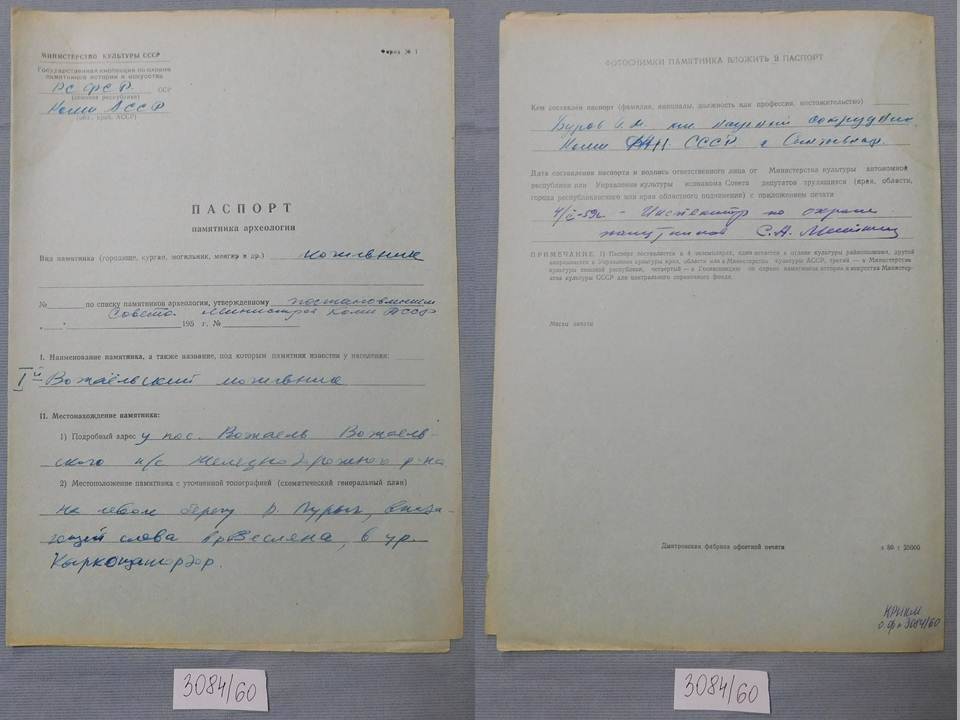 МИНИСТЕРСТВО КУЛЬТУРЫ СССР
Форма № 1
Государственная инспекция по охране
памятников истории и искусства
РСФСР ССР
(союзная республика)
Коми АССР
(обл. край, АССР)
ПАСПОРТ
памятника археологии
Вид памятника (городище, курган, могильник, менгир и др.) могильник
№ по списку памятников археологии, утвержденному постановлением
Совета Министров Коми АССР
" " 195 г. №
I. Наименование памятника, а также название, под которым памятник известен у населения:
I й Вожаёльский могильник
II. Местонахождение памятника:
1) Подробный адрес у пос. Вожаель Вожаель-
ского п/с Железнодорожного р-на
2) Местоположение памятника с уточненной топографией (схематический генеральный план)
на левом берегу р. впада-
ющей слева в р. Весляна, в ур.
3084/60
ФОТОСНИМКИ ПАМЯТНИКА ВЛОЖИТЬ В ПАСПОРТ
Кем составлен паспорт (фамилия, инициалы, должность или профессия, местожительство)
Буров научный сотрудник
Коми СССР г. Сыктывкар
Дата составления паспорта и подпись ответственного лица от Министерства культуры автономной
республики или Управления культуры исполкома Совета депутатов трудящихся (края, области,
города республиканского или края областного подчинения) с приложением печати
59г. - Инспектор по охране
памятников С.А.
ПРИМЕЧАНИЕ. 1) Паспорт составляется в 4 экземплярах, один остается в отделе культуры райисполкома, другой
направляется в Управление культуры края, области или в Министерство культуры АССР, третий — в Министерство
культуры союзной республики, четвертый — в Госинспекцию по охране памятников истории и искусства Министер-
ства культуры СССР для центрального справочного фонда.
Место печати
Дмитровская фабрика офсетной печати
з 80 т 25000
КРИКМ
о.ф. 3084/60
3084/60